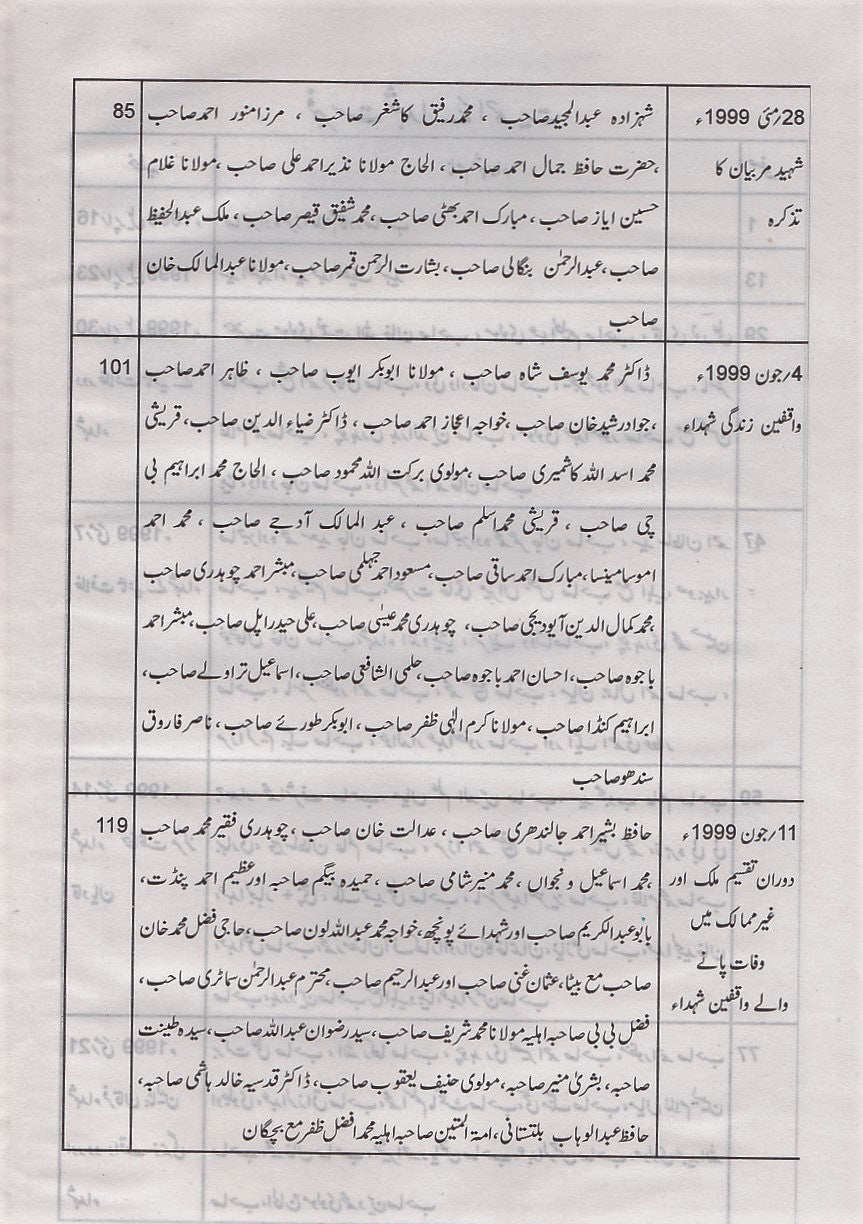 28؍مئی 1999ء
شہید مربیان کا
تذکرہ
شہزادہ عبدالمجید صاحب ، محمد رفیق کاشغر صاحب ، مرزا منور احمد صاحب
،حضرت حافظ جمال احمد صاحب ، الحاج مولانا نذیر احمد علی صاحب ،مولانا غلام
حسین ایاز صاحب ، مبارک احمد بھٹی صاحب ،محمد شفیق قیصر صاحب ، ملک عبدالحفیظ
صاحب ،عبدالرحمٰن بنگالی صاحب، بشارت الرحمن قمر صاحب ،مولانا عبدالمالک خان
صاحب
85
4؍جون 1999ء
واقفین زندگی شہداء
ڈاکٹر محمد یوسف شاہ صاحب ، مولانا ابوبکر ایوب صاحب ، ظاہر احمد صاحب
،جواد رشید خان صاحب ،خواجہ اعجاز احمد صاحب ، ڈاکٹر ضیاء الدین صاحب، قریشی
محمد اسد اللہ کاشمیری صاحب ،مولوی برکت اللہ محمود صاحب ، الحاج محمد ابراہیم بی
چی صاحب ، قریشی محمد اسلم صاحب ، عبد المالک آدجے صاحب ، محمد احمد
اموسامینسا،مبارک احمد ساقی صاحب ،مسعود احمد جہلمی صاحب ،مبشر احمد چوہدری صاحب
،محمد کمال الدین آیودیجی صاحب، چوہدری محمد عیسٰی صاحب ،علی حیدر اپل صاحب ،مبشر احمد
باجوہ صاحب ، احسان احمد باجوہ صاحب، حلمی الشافعی صاحب ، اسماعیل تراولے صاحب ،
ابراہیم کنڈا صاحب ،مولانا کرم الٰہی ظفر صاحب ، ابوبکر طورئے صاحب ، ناصر فاروق
سندھو صاحب
101
11؍جون 1999ء
دوران تقسیم ملک اور
غیر ممالک میں
وفات پانے
والے واقفین شہداء
حافظ بشیر احمد جالندھری صاحب ، عدالت خان صاحب ، چوہدری فقیر محمد صاحب
،محمد اسماعیل ونجواں ،محمد منیر شامی صاحب ،حمیدہ بیگم صاحبہ اور عظیم احمد پنڈت ،
بابو عبد الکریم صاحب اور شہدائے پونچھ ،خواجہ محمد عبد اللہ لون صاحب ،حاجی فضل محمد خان
صاحب مع بیٹا،عثمان غنی صاحب اور عبد الرحیم صاحب ،محترم عبدالرحمٰن سماٹری صاحب ،
فضل بی بی صاحبہ اہلیہ مولانا محمد شریف صاحب ،سید رضوان عبد اللہ صاحب، سیدہ طینت
صاحبہ ، بشریٰ منیر صاحبہ ،مولوی حنیف یعقوب صاحب ، ڈاکٹر قدسیہ خالد ہاشمی صاحبہ ،
حافظ عبدالوہاب بلتستانی ،امۃ المتین صاحبہ اہلیہ محمد افضل ظفر مع بچگان
119